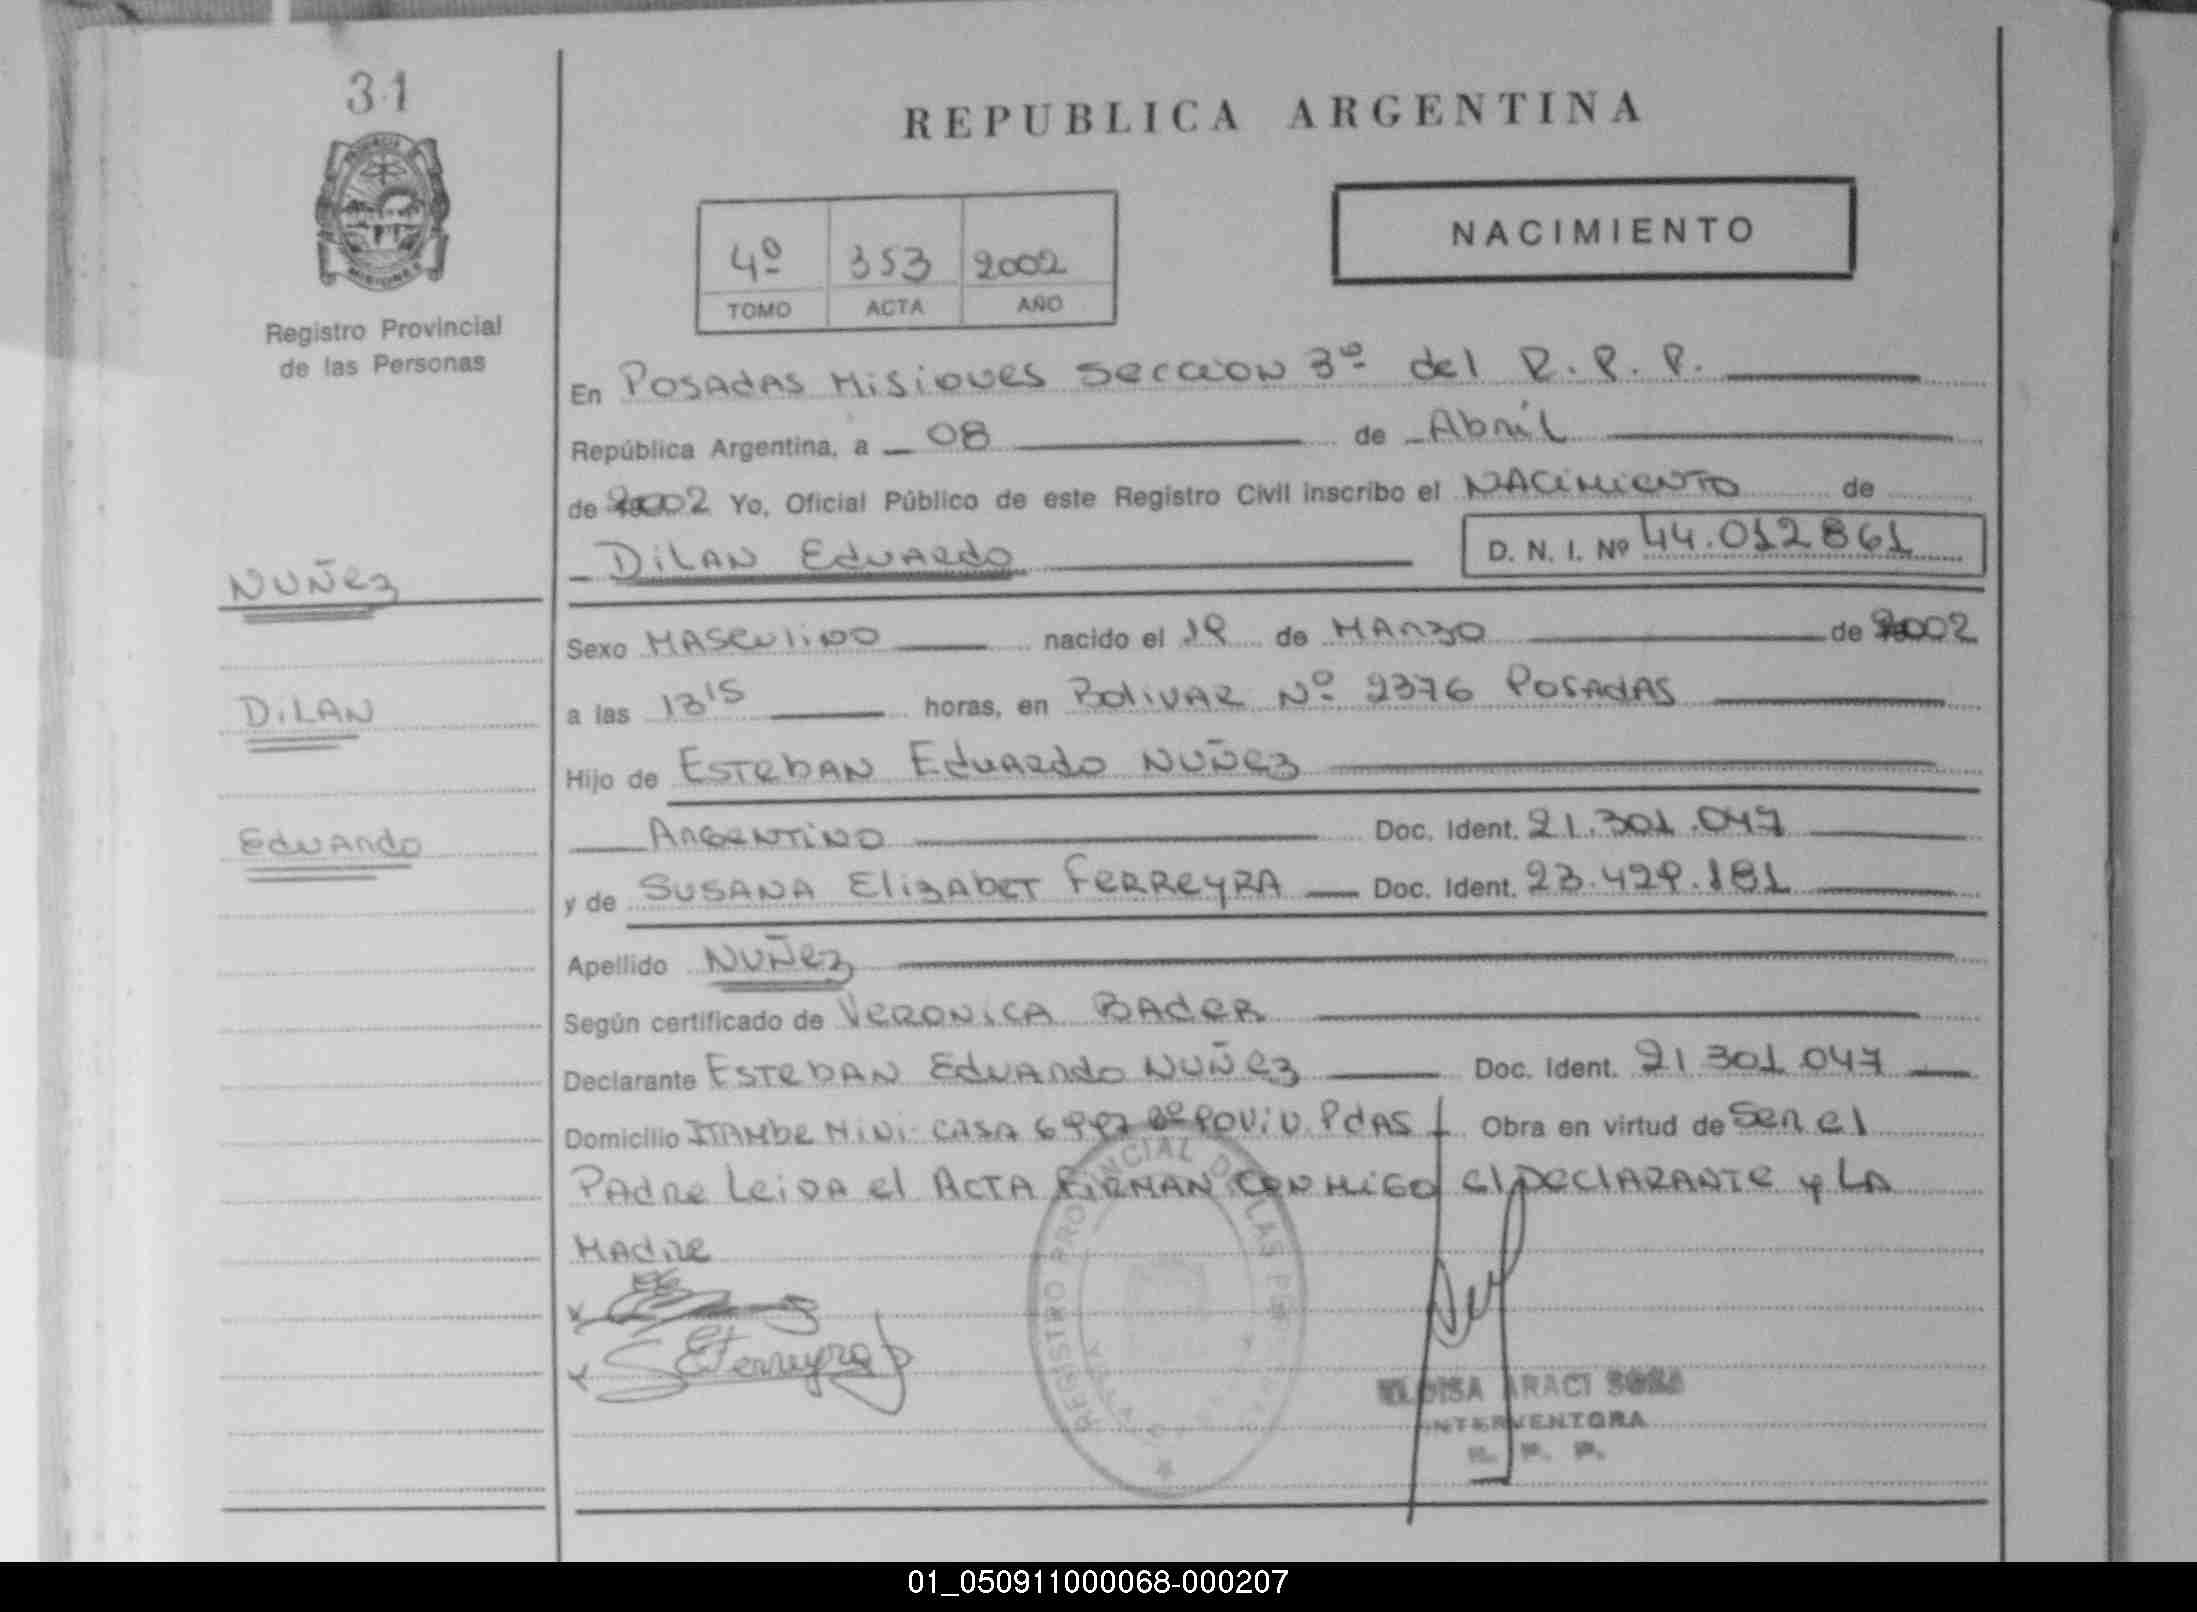 31
Registro Provincial
de las Personas
NUÑez
DiLAN
Eduardo
REPUBLICA ARGENTINA
NACIMIENTO
4º 353 2002
TOMO ACTA AÑO
En POSAdAS MisioNes Seccion 3º del R.P.P.
República Argentina, a 08 de Abril
de 2002 Yo, Oficial Público de este Registro Civil inscribo el NACimieNTO de
DiLAN EduARdo D. N. I. Nº 44.012861
Sexo MASCuliNO nacido el 19 de MARZO de 2002
a las 13 15 horas, en BoliVAR Nº 2376 POSAdAS
Hijo de ESTebAN EduARdo NUÑez
ARGeNTiNO Doc. Ident. 21.301.047
y de SUSANA ElizAbeT FeRReyRA Doc. Ident. 23.429.181
Apellido NUÑez
Según certificado de VeRONiCA BAdeR
Declarante ESTebAN EduARdo NUÑez Doc. Ident. 21 301 047
Domicilio ITAMbe MiNi CASA PdAS Obra en virtud de Ser el
PAdRe LeidA el ACTA FiRMAN CONMiGO el DeclARANTe y LA
MAdRe
S E Ferreyra
REGISTRO PROVINCIAL DE LAS
ELOISA ARACI SOSA
INTERVENTORA
R. P. P.
01_050911000068-000207